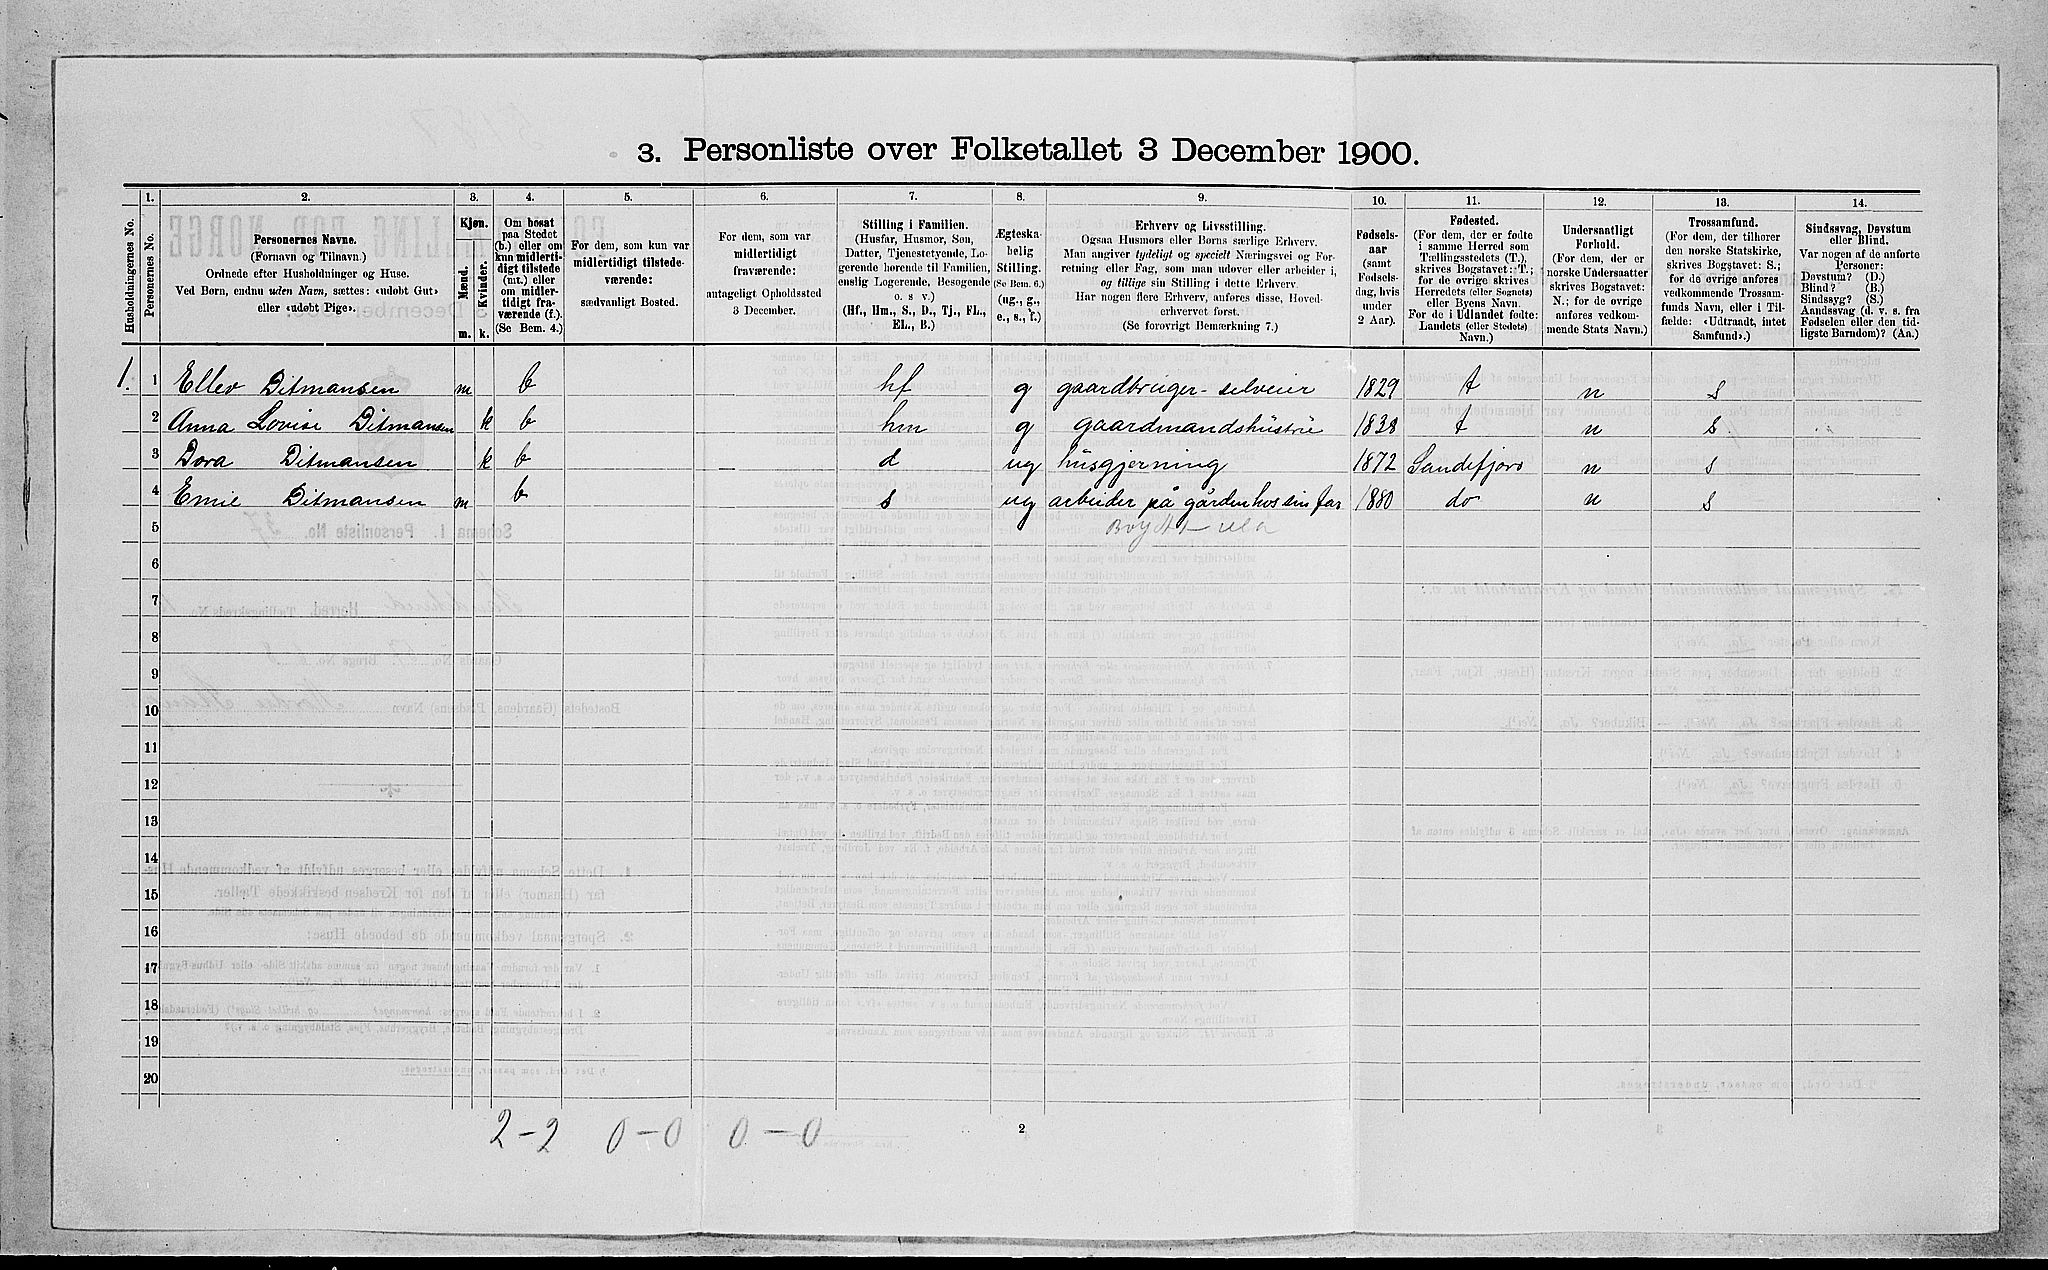 3. Personliste over Folketallet 3 December 1900.
Husholdningernes No.
1.
Personernes No.
2.
Personernes Navne.
(Fornavn og Tilnavn.)
Ordnede efter Husholdninger og Huse.
Ved Børn, endnu uden Navn, sættes: «udøbt Gut»
eller «udøbt Pige».
3.
Kjøn.
Mænd.
Kvinder.
m. k.
4.
Om bosat
paa Stedet
(b.) eller om
kun midlerti-
digt tilstede
(mt.) eller
om midler-
tidigt fra-
værende (f.).
(Se Bem. 4.)
5.
For dem, som kun var
midlertidigt tilstede-
værende:
sædvanligt Bosted.
6.
For dem, som var
midlertidigt
fraværende:
antageligt Opholdssted
3 December.
7.
Stilling i Familien.
(Husfar, Husmor, Søn,
Datter, Tjenestetyende, Lo-
gerende hørende til Familien,
enslig Logerende, Besøgende
o. s v.)
(Hf., Hm., S., D., Tj., FL.,
EL., B.)
8.
Ægteska-
belig
Stilling.
(Se Bem. 6.)
(ug., g.,
e., s., f.)
9.
Erhverv og Livsstilling.
Ogsaa Husmors eller Børns særlige Erhverv.
Man angiver tydeligt og specielt Næringsvei og For-
retning eller Fag, som man udøver eller arbeider i,
og tillige sin Stilling i dette Erhverv.
Har nogen flere Erhverv, anføres disse, Hoved-
erhvervet først.
(Se forøvrigt Bemærkning 7.)
10.
Fødsels-
aar
(samt
Fødsels-
dag, hvis
under
2 Aar).
11.
Fødested.
(For dem, der er fødte
i samme Herred som
Tællingsstedets (T.),
skrives Bogstavet: T.;
for de øvrige skrives
Herredets (eller Sognets)
eller Byens Navn.
For de i Udlandet fødte:
Landets (eller Stedets)
Navn.)
12.
Undersaatligt
Forhold.
(For dem, der er
norske Undersaatter
skrives Bogstavet:
N.; for de øvrige
anføres vedkom-
mende Stats Navn.)
13.
Trossamfund.
(For dem, der tilhører
den norske Statskirke,
skrives Bogstavet: S.;
for de øvrige anføres
vedkommende Trossam-
funds Navn, eller i Til-
fælde: «Udtraadt, intet
Samfund».)
14.
Sindssvag, Døvstum
eller Blind.
Var nogen af de anførte
Personer:
Døvstum? (D.)
Blind? (B.)
Sindssyg? (S.)
Aandssvag (d. v. s. fra
Fødselen eller den tid-
ligste Barndom)? (Aa.)
1. 1 Ellev Ditmansen m b hf g gaardbruger - selveier 1829 t n s
2 Anna Lovise Ditmansen k b hm g gaardmandshustrue 1838 t n s
3 Dora Ditmansen k b d ug husgjerning 1872 Sandefjord n s
4 Emil Ditmansen m b s ug arbeider på gården hos sin far 1880 do n s
5
6
7
8
9
10
11
12
13
14
15
16
17
18
19
20
2-2 0-0 0-0
2